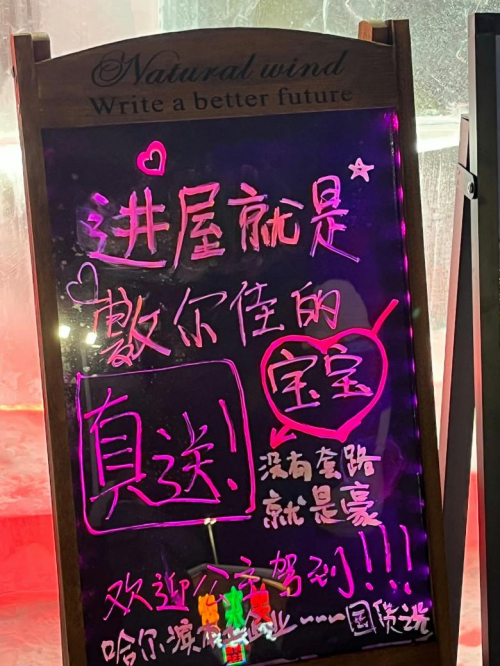 Natural wind
Write a better future
进屋就是
敷尔佳的
宝宝
真送!
没有套路
就是豪
欢迎公主驾到!!!
哈尔滨企业~~~国货选